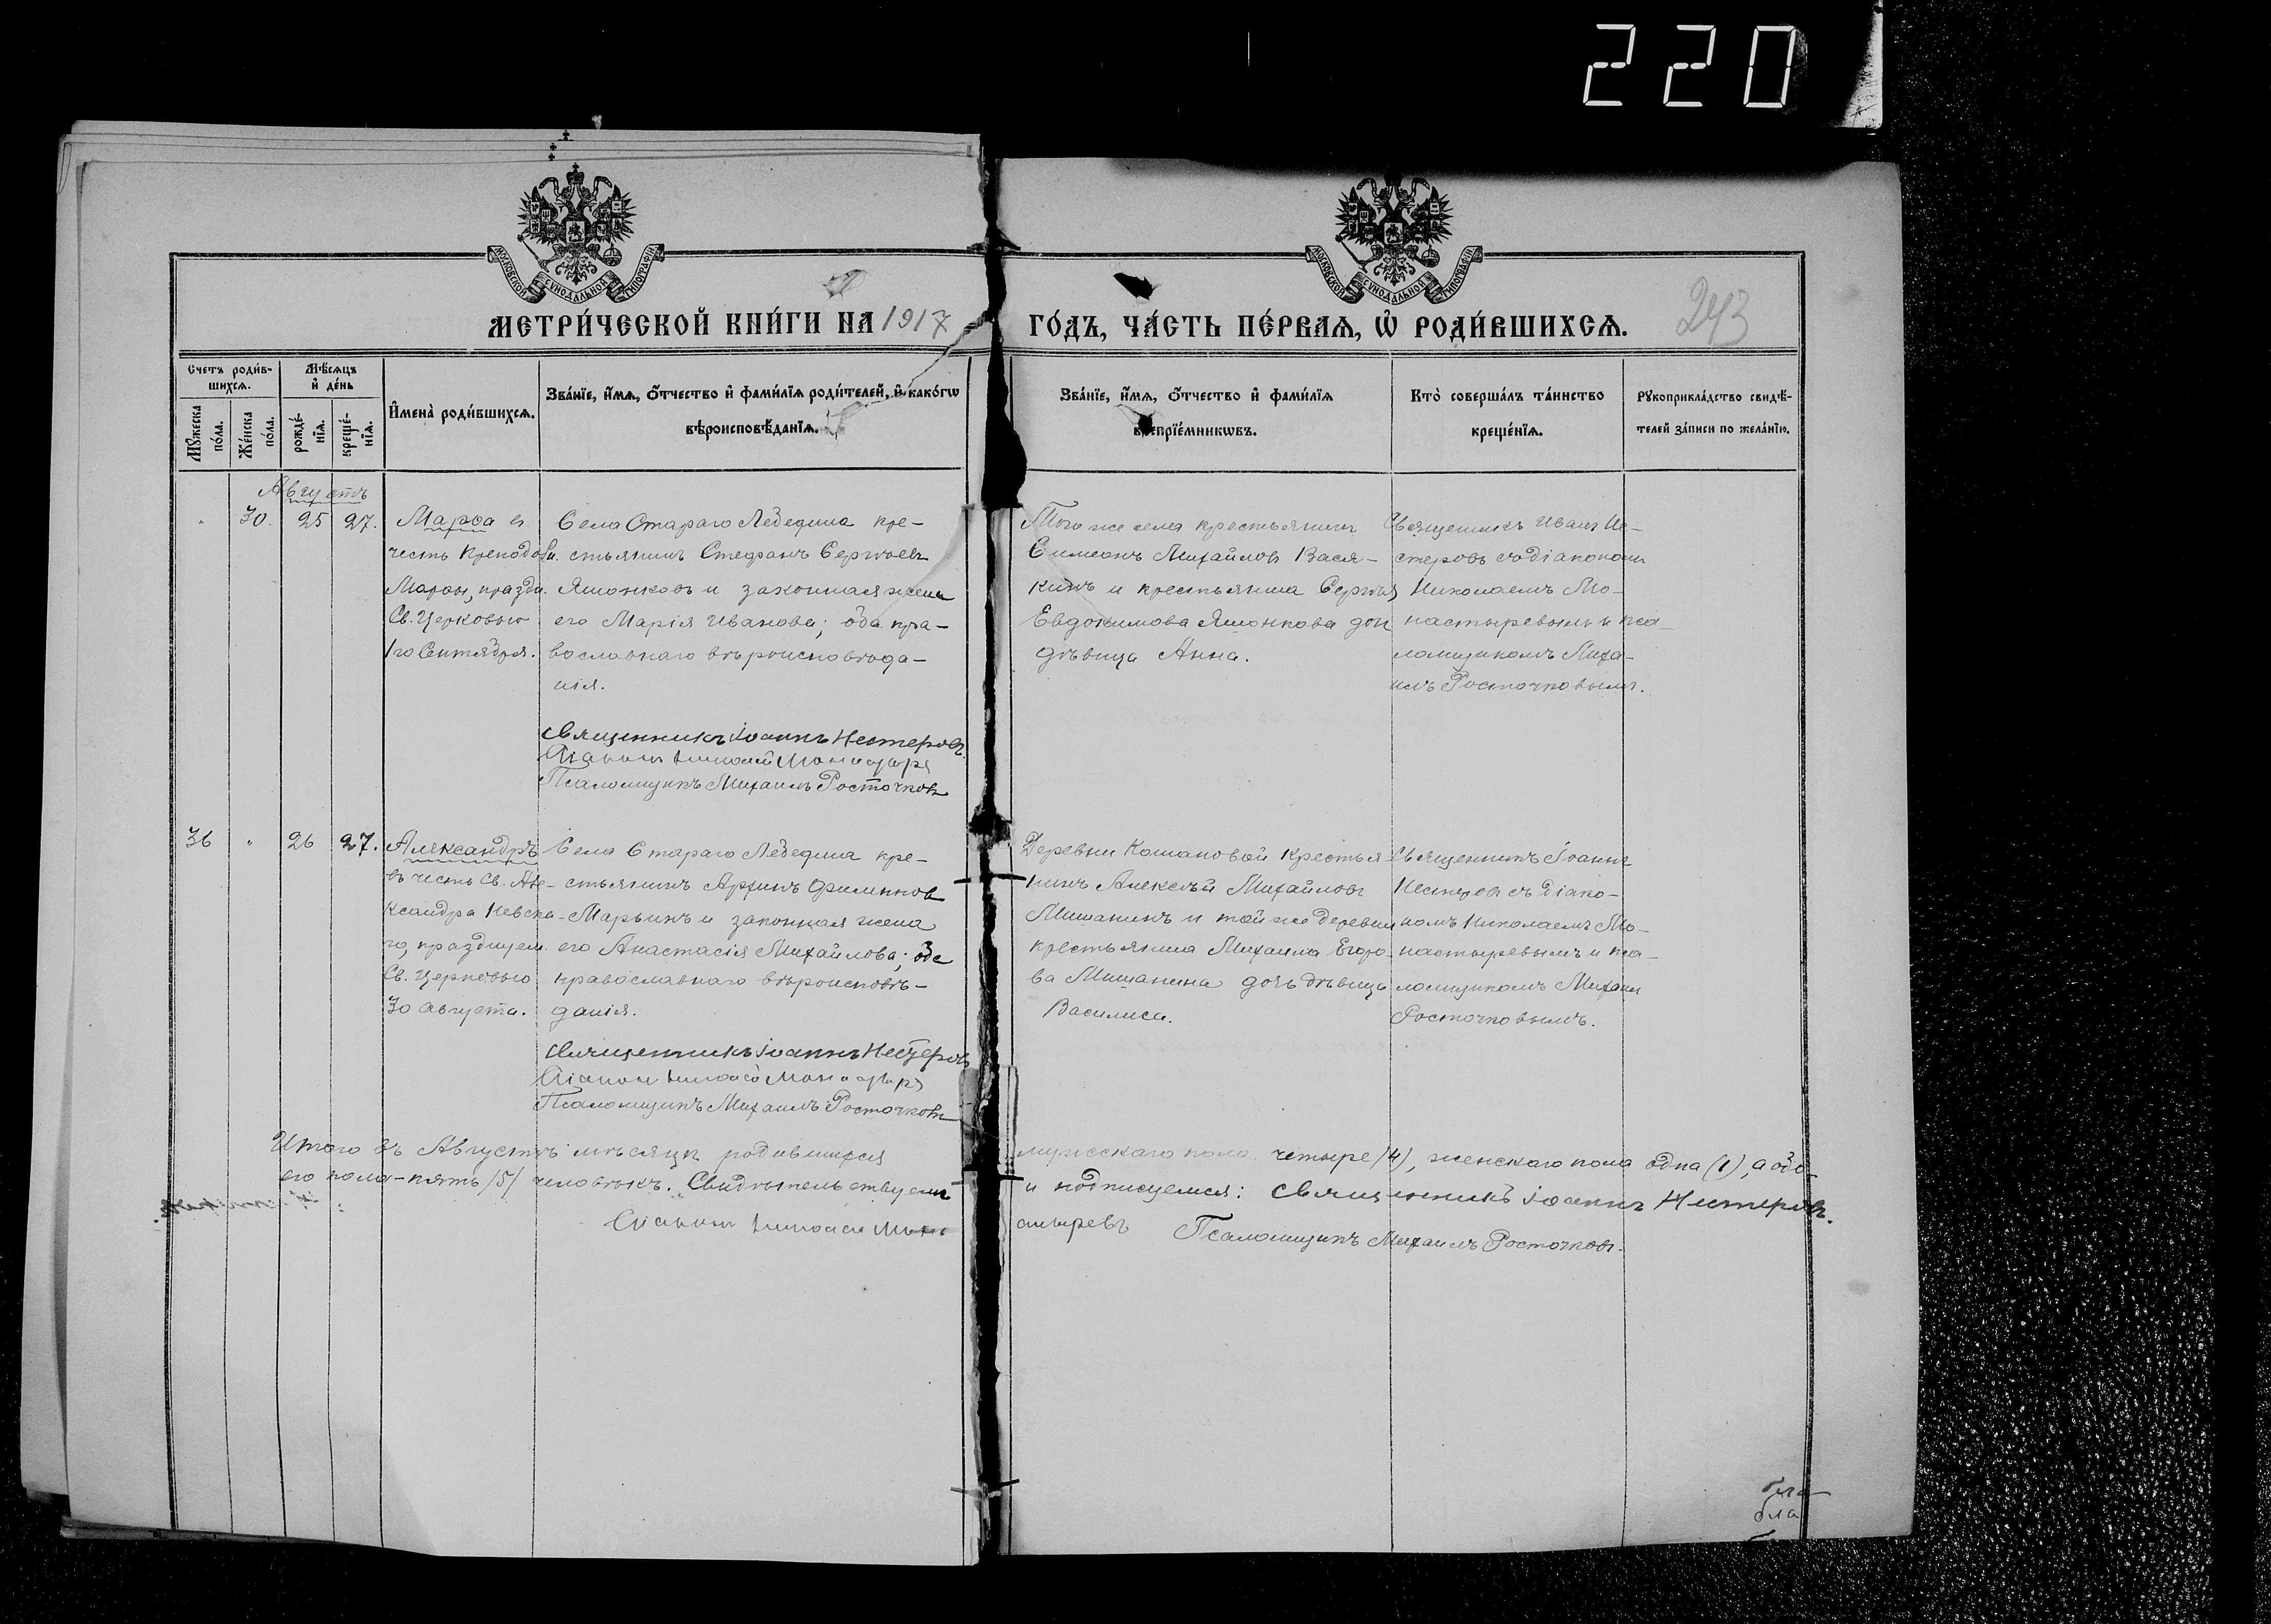 220
МОСКОВСКОЙ СУНОДАЛЬНОЙ ТИПОГРАФІИ
МОСКОВСКОЙ СУНОДАЛЬНОЙ ТИПОГРАФІИ
МЕТРИ́ЧЕСКОЙ КНИ́ГИ НА 1917
ГО́ДЪ, ЧА́СТЬ ПЕ́РВАѦ, Ѡ҆ РОДИ́ВШИХСѦ.
243
Счетъ роди́в-
шихсѧ.
Мѣ́сѧцъ
и҆ де́нь
Мꙋ́жеска
по́ла.
Же́нска
по́ла.
рожде́-
нїѧ.
креще́-
нїѧ.
И҆мена̀ роди́вшихсѧ.
Зва́нїе, и҆́мѧ, ѻ҆́тчество и҆ фами́лїѧ роди́телей, и҆ како́гѡ
вѣроисповѣ́данїѧ.
Зва́нїе, и҆́мѧ, ѻ҆́тчество и҆ фами́лїѧ
воспрїе́мникѡвъ.
Кто̀ соверша́лъ та́инство
креще́нїѧ.
Рꙋкоприкла́дство свидѣ́-
телей за́писи по жела́нїю.
Августъ
" 30. 25 27.
Марѳа в
честь Преподобн.
Марѳы, праздн.
Св. Церковью
1го Сентября.
Села Стараго Лебедина кре-
стьянинъ Стефанъ Сергѣевъ
Ямонковъ и законная жена
его Марія Иванова; оба пра-
вославнаго вѣроисповѣда-
нія.
Священникъ Іоаннъ Нестеровъ
Діаконъ Николай
Псаломщикъ Михаилъ Росточковъ
Того же села крестьянинъ
Симеонъ Михайловъ Вася-
кинъ и крестьянина Сергѣя
Евдокимова Ямонкова доч
дѣвица Анна.
Священникъ Иванъ Не-
стеровъ съ діакономъ
Николаемъ Мо-
настыревымъ и пса-
ломщикомъ Миха-
иломъ Росточковымъ.
36 " 26 27.
Александръ
въ честь Св. Але-
ксандра Невска-
го, празднуем.
Св. Церковью
30 Августа.
Села Стараго Лебедина кре-
стьянинъ Архипъ Филиппов
Марьинъ и законная жена
его Анастасія Михайлова; оба
православнаго вѣроисповѣ-
данія.
Священникъ Іоаннъ Нестеровъ
Діаконъ Николай
Псаломщикъ Михаилъ Росточковъ
Деревни Кошановой крестья-
нинъ Алексѣй Михайловъ
Мишанинъ и той же деревни
крестьянина Михаила Егоро-
ва Мишанина дочь дѣвица
Василиса.
Священникъ Іоаннъ
Нестеровъ съ Діако-
номъ Николаемъ Мо-
настыревымъ и пса-
ломщикомъ Михаил
Росточковымъ.
Итого въ Августѣ мѣсяцѣ родившихся
мужескаго пола четыре /4/, женскаго пола одна (1), а обо-
его пола - пять /5/ человѣкъ. Свидѣтельствуемъ
и подписуемся: Священникъ Іоаннъ Нестеровъ.
Діаконъ Николай Мона
стыревъ Псаломщикъ Михаилъ Росточковъ.
бла
бла